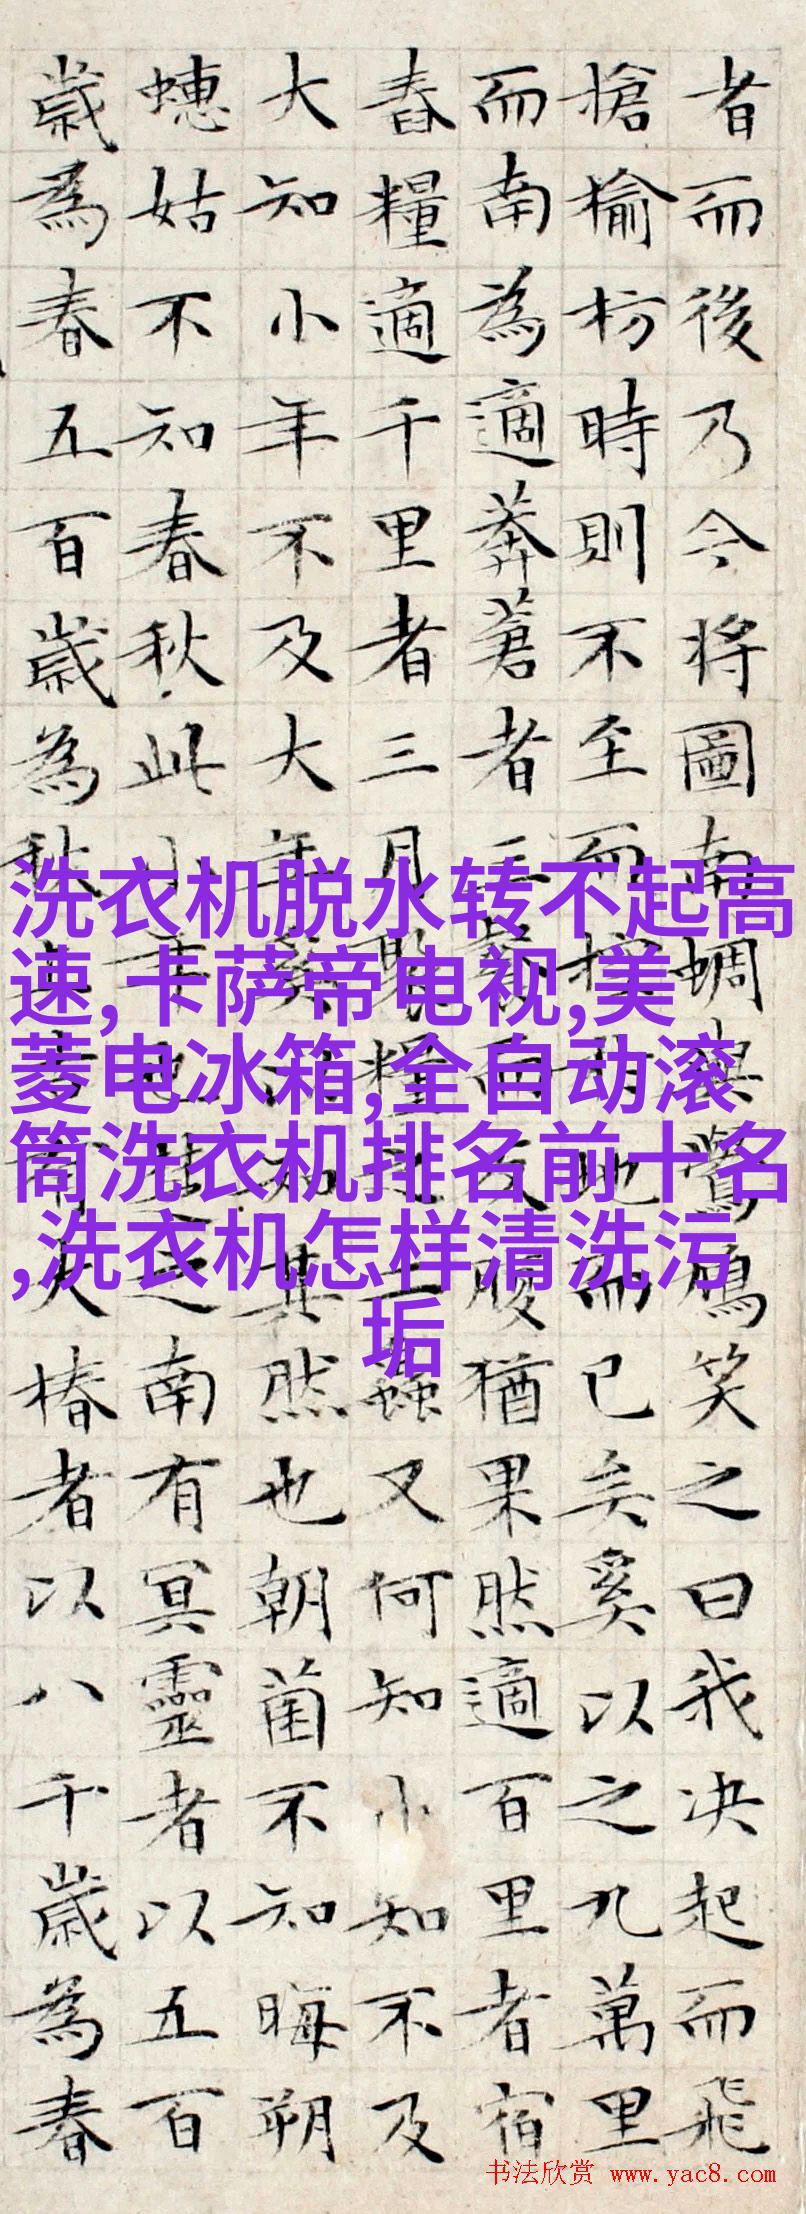 者而後乃今将圖南蜩與鷽鳩笑之曰我决起而飛
槍榆枋時則不至而控於地而已矣奚以之九萬里
而南為適莽蒼者三餐而反腹猶果然適百里者宿
舂糧適千里者三月聚糧之二蟲又何知小知不及
大知小年不及大年奚以知其然也朝菌不知晦朔
蟪姑不知春秋此小年也楚之南有冥靈者以五百
歲為春五百歲為秋上古有大椿者以八千歲為春
洗衣机脱水转不起高
速,卡萨帝电视,美
菱电冰箱,全自动滚
筒洗衣机排名前十名
,洗衣机怎样清洗污
垢
书法欣赏 www.yac8.com